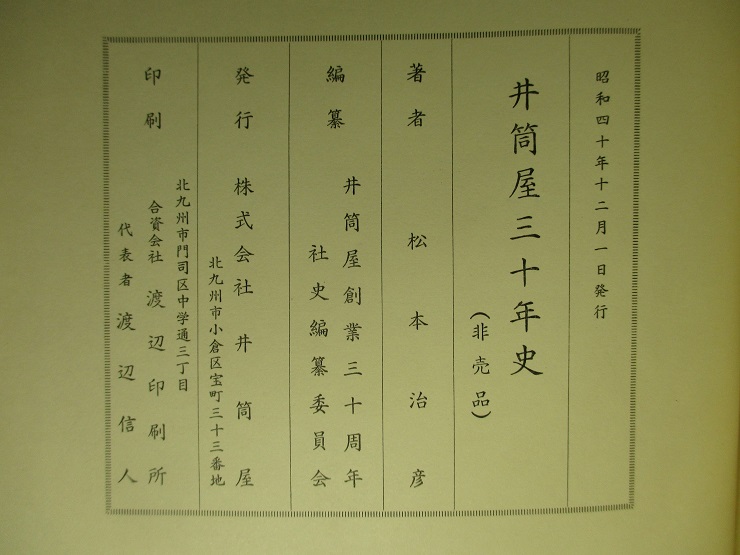 昭和四十年十二月一日発行
井筒屋三十年史
(非売品)
著者 松本治彦
編纂 井筒屋創業三十周年
社史編纂委員会
発行 株式会社 井筒屋
北九州市小倉区宝町三十三番地
印刷
北九州市門司区中学通三丁目
合資会社 渡辺印刷所
代表者 渡辺信人